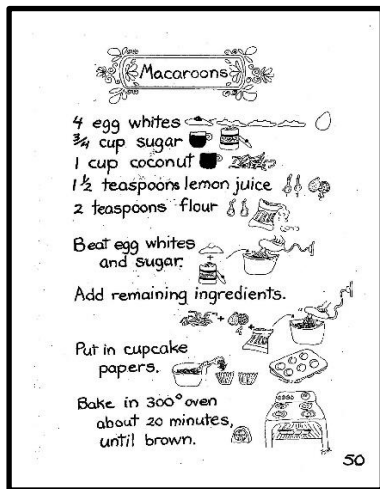 Macaroons
4 egg whites
3/4 cup sugar
1 cup coconut
1 1/2 teaspoons lemon juice
2 teaspoons flour
Beat egg whites
and sugar.
Add remaining ingredients.
Put in cupcake
papers.
Bake in 300° oven
about 20 minutes,
until brown.
50